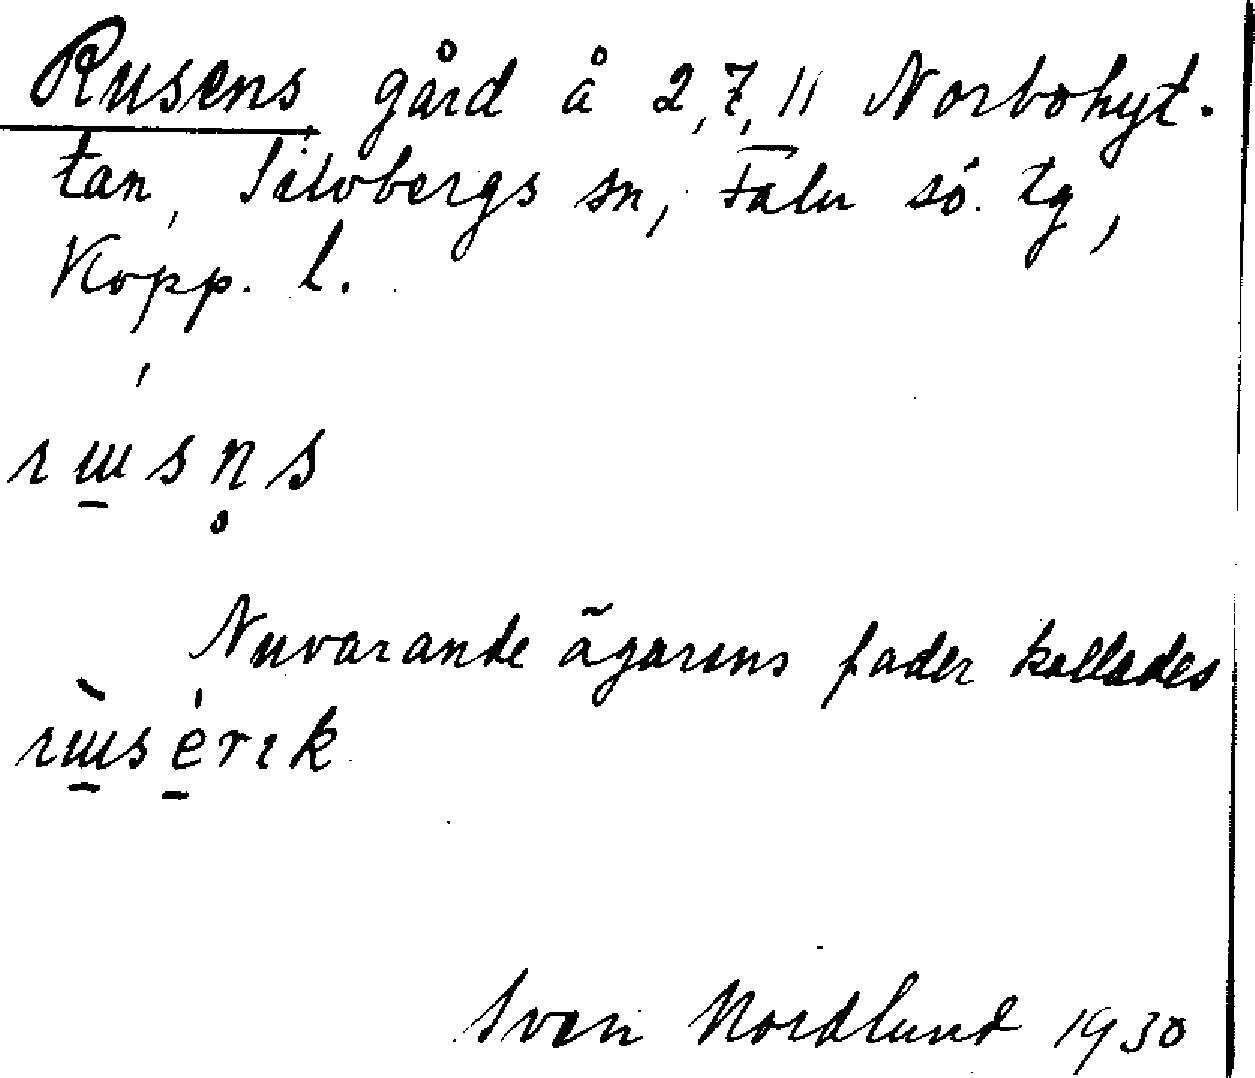 Rusens gård å 2,7,11 Norbohyt-
tan, Silvbergs sn, Falu sö. tg,
Kopp. l.
rɯ̱́sn̥s
Nuvarande ägarens fader kallades
rɯ̱̀se̱̍rɪk
Sven Nordlund 1930